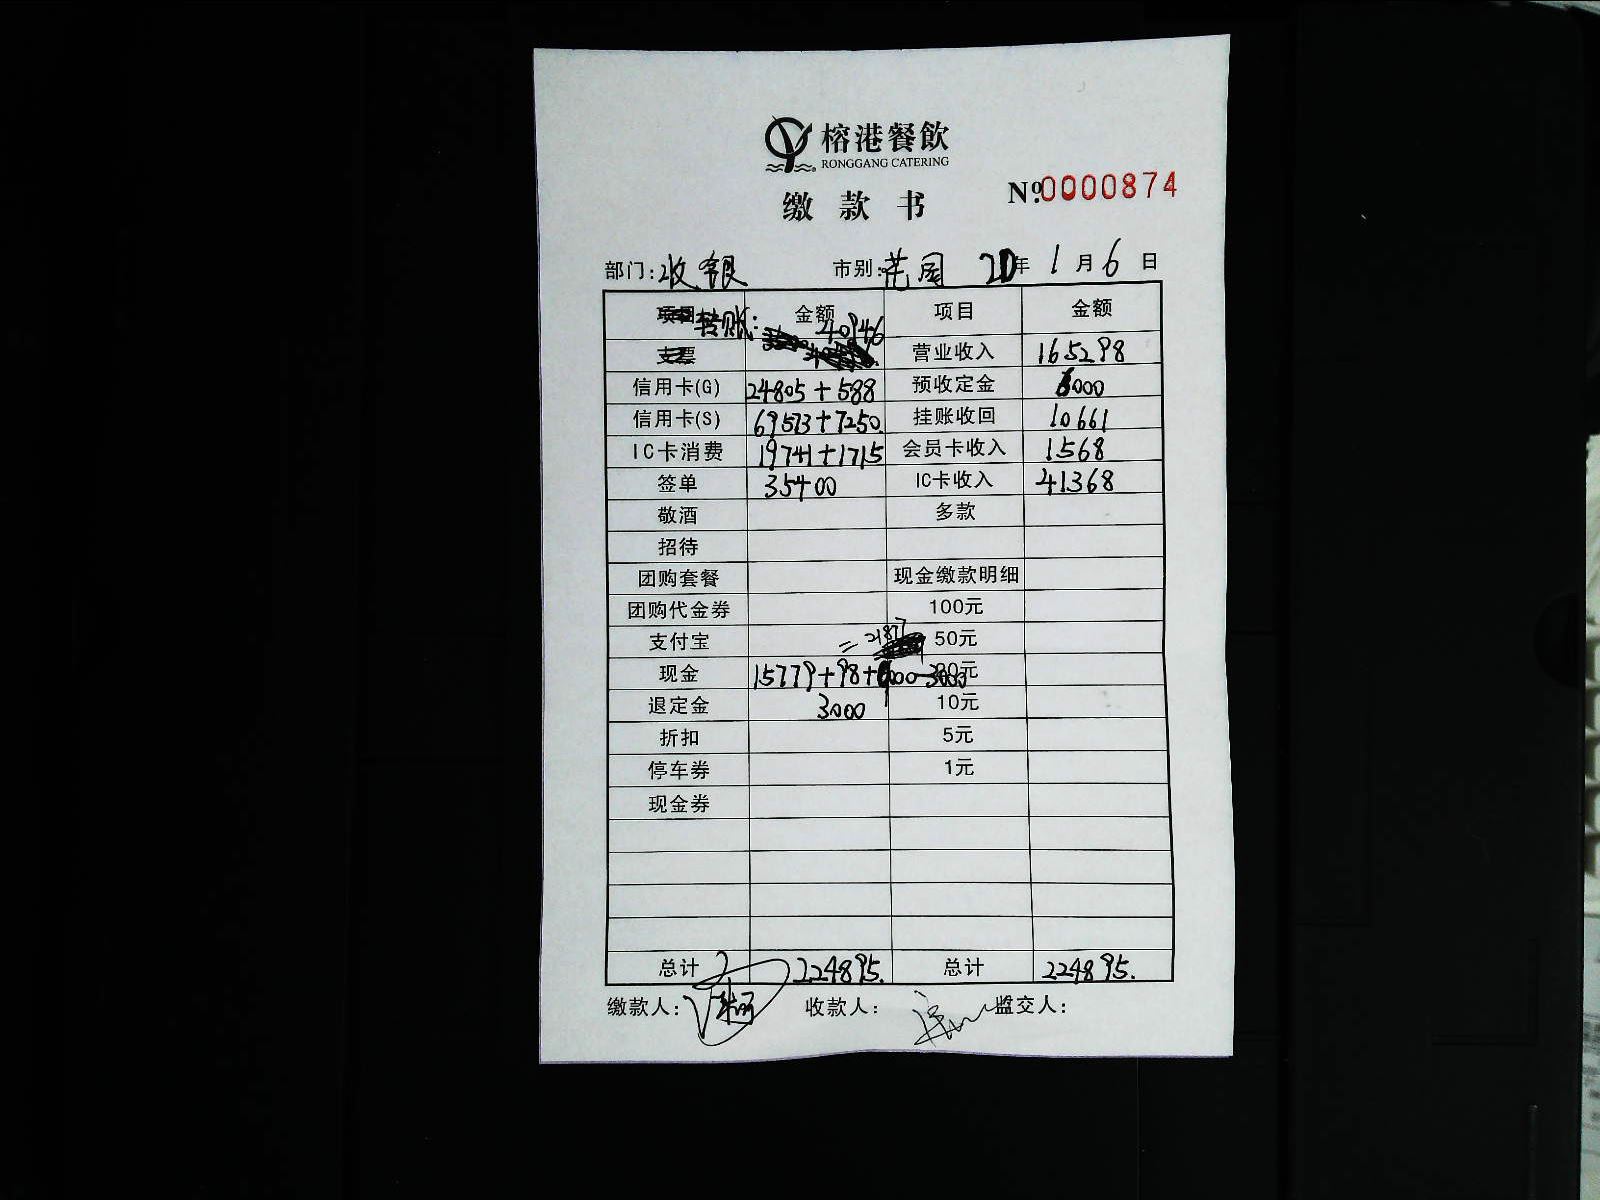 榕港餐飲
RONGGANG CATERING
缴款书
Nº.0000874
部门：收银 市别：花园 20年1月6日
转账： 金额 40946 项目 金额
支票 营业收入 165298
信用卡(G) 24805+588 预收定金 6000
信用卡(S) 69573+7250. 挂账收回 10661
IC卡消费 19741+1715 会员卡收入 1568
签单 35400 IC卡收入 41368
敬酒 多款
招待
团购套餐 现金缴款明细
团购代金券 100元
支付宝 =21877 50元
现金 15779+98+9000-3000 20元
退定金 3000 10元
折扣 5元
停车券 1元
现金券
总计 224895. 总计 224895.
缴款人： 收款人： 监交人：